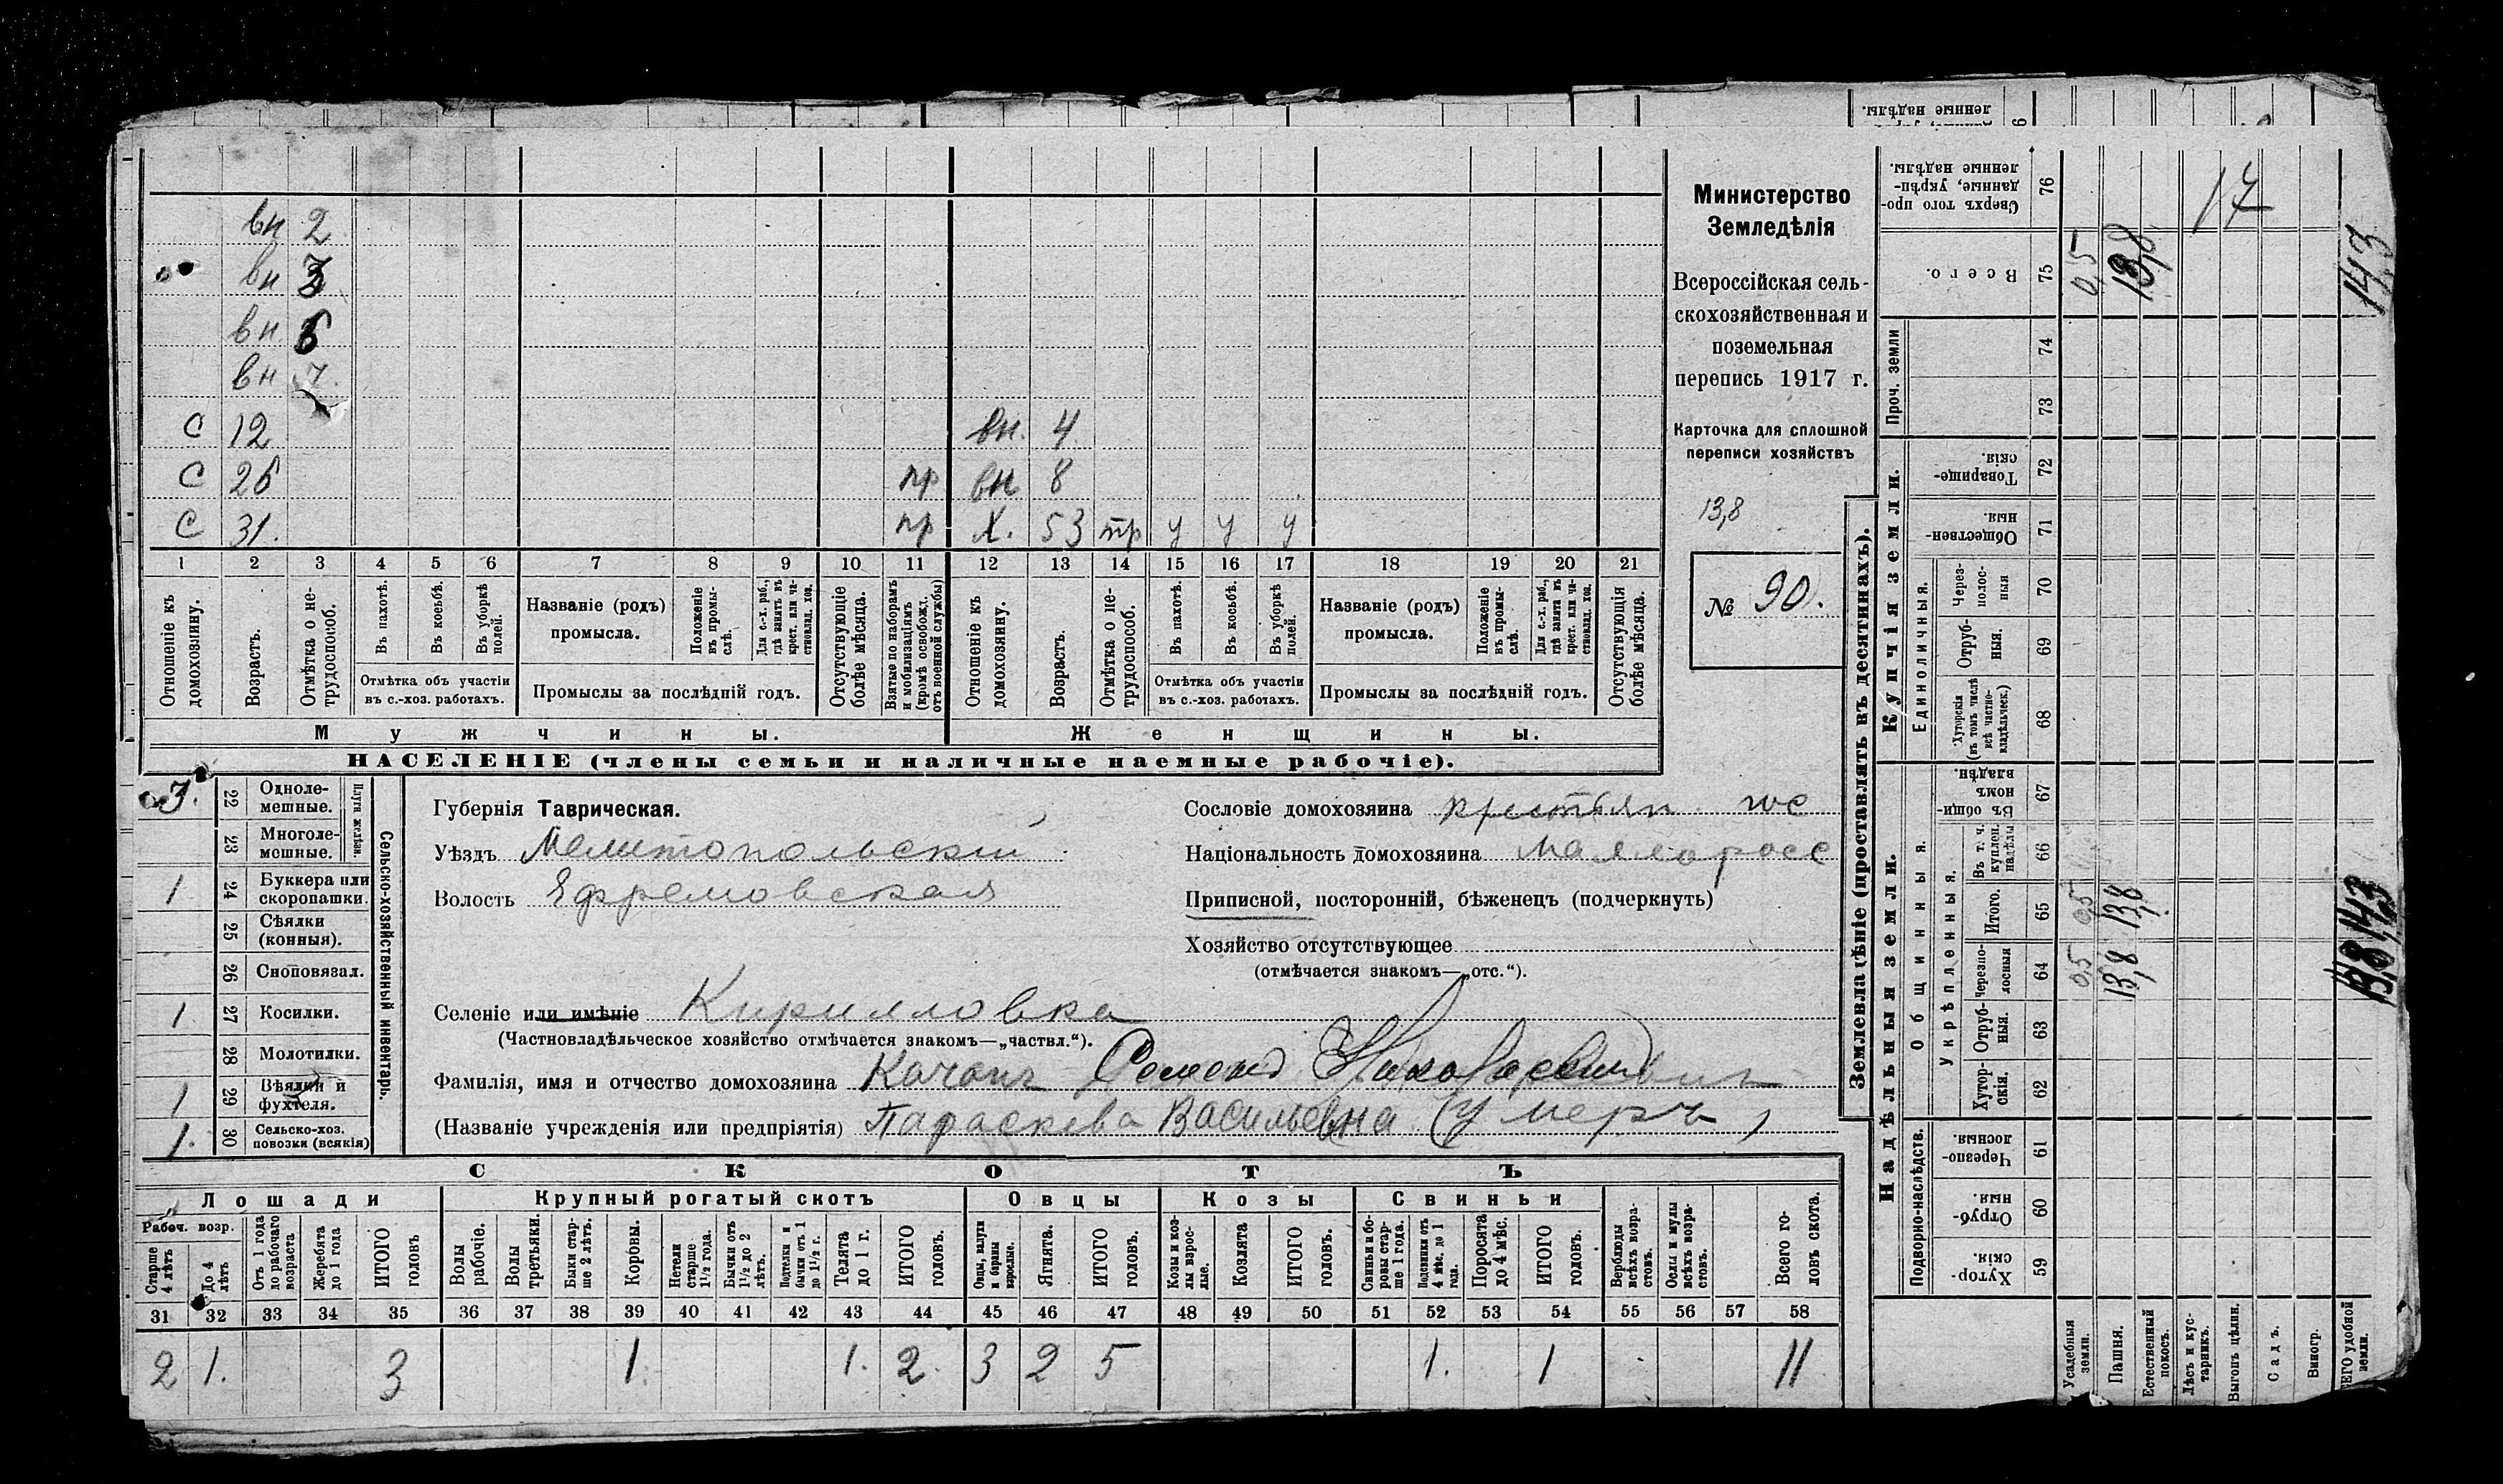 ленные надѣлы.
вн 2
вн 3
вн
вн
С 12 вн. 4
С 26 пр вн 8
С 31. пр Х. 53 тр у у у
1 2 3 4 5 6 7 8 9 10 11 12 13 14 15 16 17 18 19 20 21
Отношеніе къ домохозяину.
Возрастъ.
Отмѣтка о нетрудоспособ.
Въ пахотѣ.
Въ косьбѣ.
Въ уборкѣ полей.
Отмѣтка объ участіи
въ с.-хоз. работахъ.
Названіе (родъ)
промысла.
Положеніе въ промыслѣ.
Для с.-х. раб., гдѣ занятъ въ крест. или частновлад. хоз.
Промыслы за послѣдній годъ.
Отсутствующіе болѣе мѣсяца.
Взятые по наборамъ и мобилизаціямъ (кромѣ освобожд. отъ военной службы)
Отношеніе къ домохозяину.
Возрастъ.
Отмѣтка о нетрудоспособ.
Въ пахотѣ.
Въ косьбѣ.
Въ уборкѣ полей.
Отмѣтка объ участіи
въ с.-хоз. работахъ.
Названіе (родъ)
промысла.
Положеніе въ промыслѣ.
Для с.-х. раб., гдѣ занята въ крест. или частновлад. хоз.
Промыслы за послѣдній годъ.
Отсутствующія болѣе мѣсяца.
Мужчины. Женщины.
НАСЕЛЕНІЕ (члены семьи и наличные наемные рабочіе).
Министерство
Земледѣлія
Всероссійская сель-
скохозяйственная и
поземельная
перепись 1917 г.
Карточка для сплошной
переписи хозяйствъ
13,8
№ 90.
22 Одноле-
мешные.
23 Многоле-
мешные.
Плуги желѣзн.
1 24 Буккера или
скоропашки.
25 Сѣялки
(конныя).
26 Сноповязал.
1 27 Косилки.
28 Молотилки.
1 29 Вѣялки и
фухтеля.
1. 30 Сельско-хоз.
повозки (всякія)
Сельско-хозяйственный инвентарь.
Губернія Таврическая.
Уѣздъ Мелитопольскій
Волость Ефремовская
Селеніе или имѣніе Кирилловка
(Частновладѣльческое хозяйство отмѣчается знакомъ—„частвл.“).
Фамилія, имя и отчество домохозяина
(Названіе учрежденія или предпріятія) Параскева Васильевна (Умеръ)
Сословіе домохозяина крестьян
Національность домохозяина Малоросс
Приписной, посторонній, бѣженецъ (подчеркнуть)
Хозяйство отсутствующее
(отмѣчается знакомъ—„отс.“).
СКОТЪ
Лошади Крупный рогатый скотъ Овцы Козы Свиньи
Рабоч. возр.
Старше 4 лѣтъ
До 4 лѣтъ
Отъ 1 года до рабочаго возраста
Жеребята до 1 года
ИТОГО головъ
Волы рабочіе.
Волы третьяки.
Быки старше 2 лѣтъ.
Коровы.
Нетели старше 1½ года.
Бычки отъ 1½ до 2 лѣтъ.
Подтелки и бычки отъ 1 до 1½ г.
Телята до 1 г.
ИТОГО головъ.
Овцы, валухи и бараны взрослые.
Ягнята.
ИТОГО головъ.
Козы и козлы взрослые.
Козлята
ИТОГО головъ.
Свиньи и боровы старше 1 года.
Подсвинки отъ 4 мѣс. до 1 года.
Поросята до 4 мѣс.
ИТОГО головъ.
Верблюды всѣхъ возрастовъ.
Ослы и мулы всѣхъ возрастовъ.
Всего головъ скота.
31 32 33 34 35 36 37 38 39 40 41 42 43 44 45 46 47 48 49 50 51 52 53 54 55 56 57 58
2 1. 3 1. 1. 2. 3 2 5 1. 1 11
Землевладѣніе (проставлять въ десятинахъ).
Надѣльныя земли. Купчія земли. Проч. земли
Подворно-наслѣдств. Общинныя. Укрѣпленныя. Единоличныя.
Хуторскія 59
Отрубныя. 60
Черезполосныя. 61
Хуторскія. 62
Отрубныя. 63
Черезполосныя 64 0,5 13,8
Итого. 65 0,5 13,8 14,3
Въ т. ч. куплен. надѣлы 66
Въ общинномъ владѣн. 67
Хуторскія (въ томъ числѣ всѣ частновладѣльческ.) 68
Отрубныя. 69
Черезполосныя 70
Общественныя. 71
Товарищескія. 72
73
74
Всего. 75 0,5 13,8 14,3
Сверхъ того проданные, укрѣпленные надѣлы. 76 17
Усадебныя земли.
Пашня.
Естественный покосъ.
Лѣсъ и кустарникъ.
Выгонъ цѣлин.
Садъ.
Виногр.
ВСЕГО удобной земли.